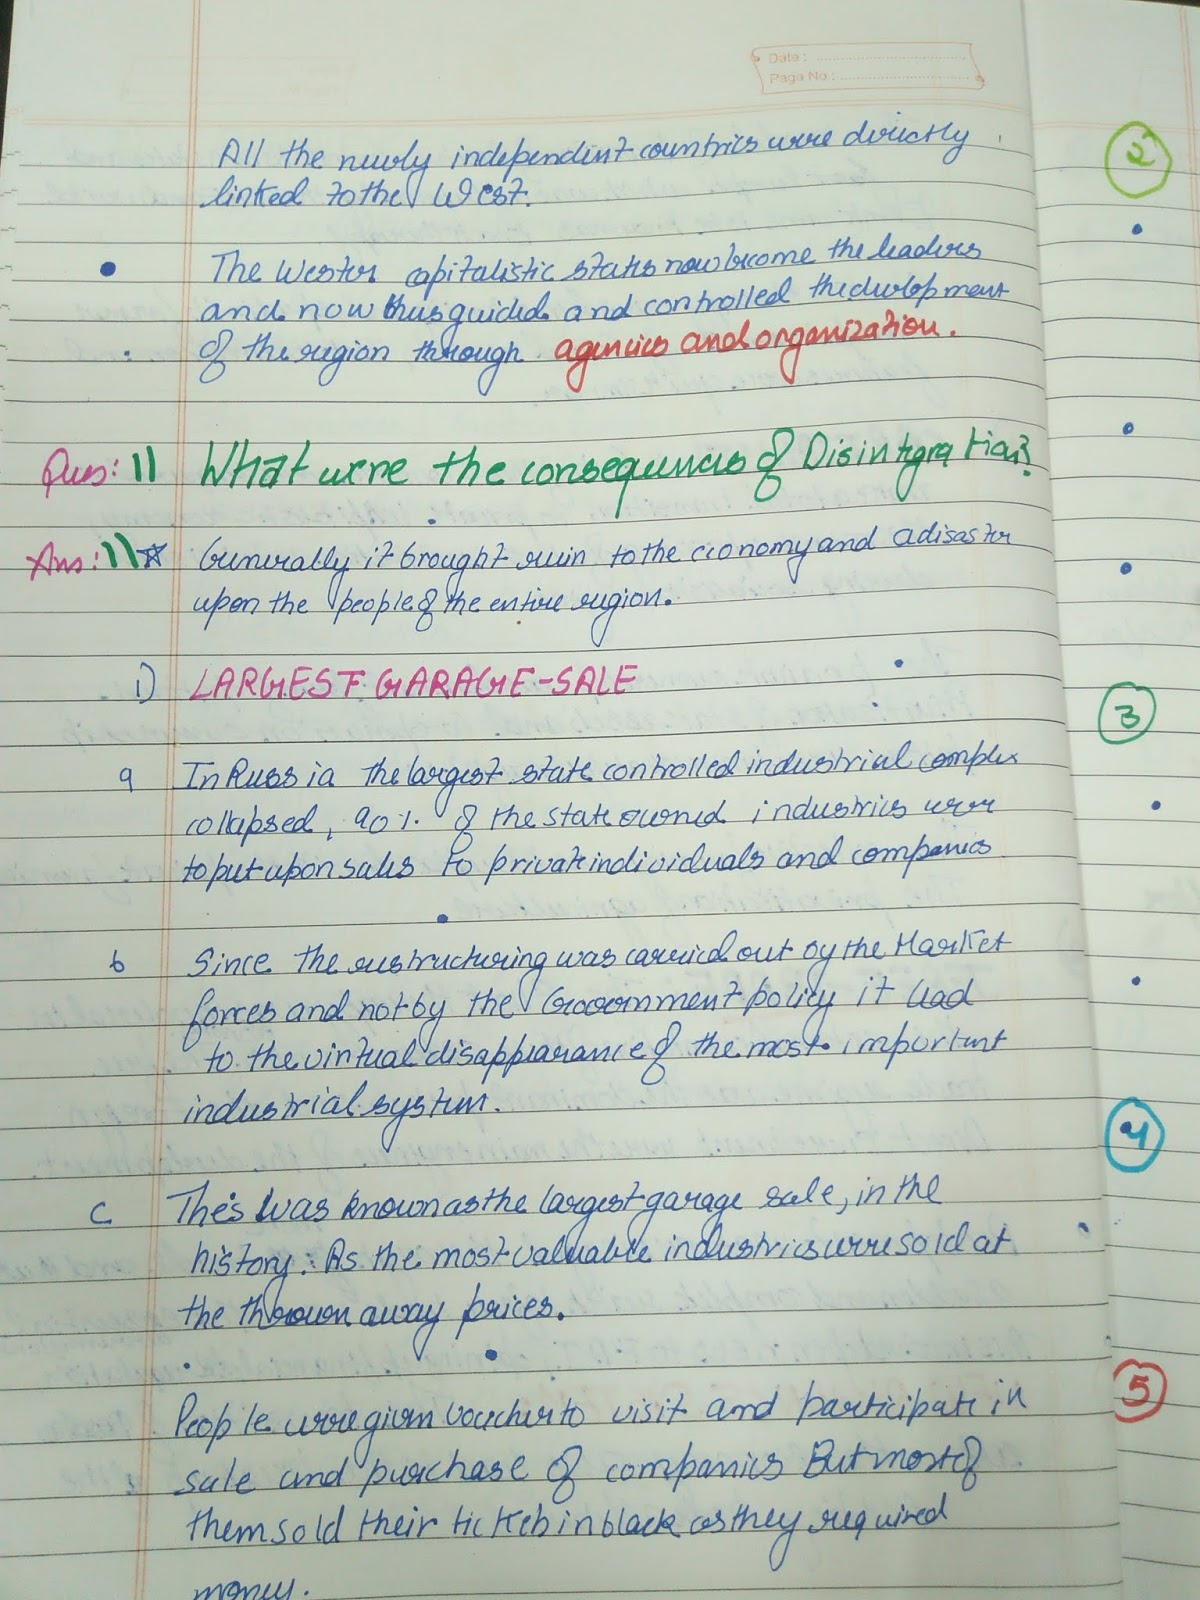 Date :
Page No :
All the newly independent countries were directly
linked to the West.
• The Wester capitalistic states now become the leaders
and now thus guided and controlled the development
of the region through agencies and organization.
Ques: 11 What were the consequences of Disintegration?
Ans: 11 ☆ Generally it brought ruin to the economy and a disaster
upon the people of the entire region.
i) LARGEST GARAGE-SALE
a In Russia the largest state controlled industrial complex
collapsed, 90%. of the state owned industries were
to put upon sales to private individuals and companies
b Since the restructuring was carried out by the Market
forces and not by the Government policy it lead
to the virtual disappearance of the most important
industrial system.
c This was known as the largest garage sale, in the
history. As the most valuable industries were sold at
the thrown away prices.
People were given voucher to visit and participate in
sale and purchase of companies But most of
them sold their tickets in black as they required
money.
2
3
4
5